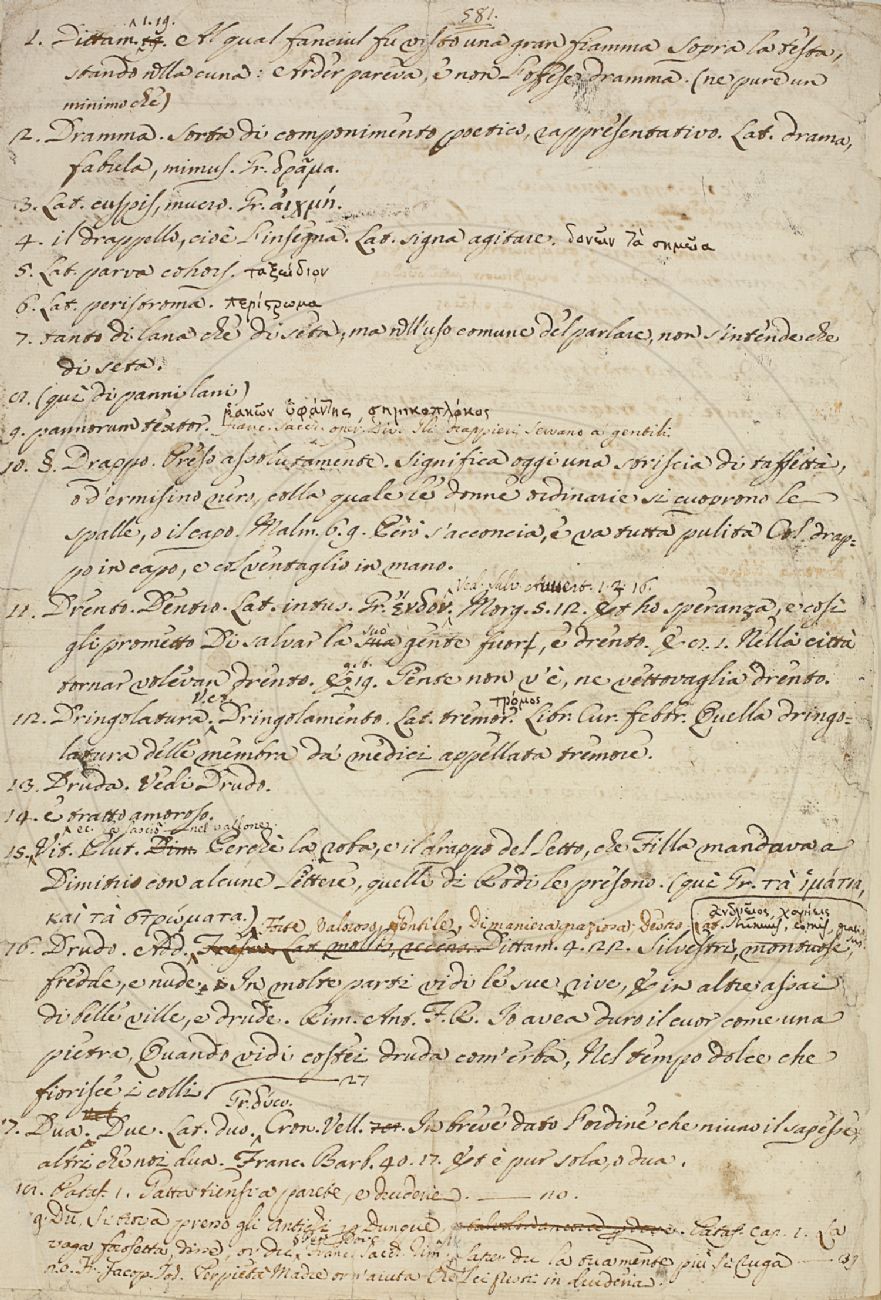 581.
1. 19.
1. Dittam. E Al qual fanciul fu visto una gran fiamma sopra la testa,
stando nella cuna: e Arder pareva, e non l'offese dramma. (ne pure un
minimo che)
2. Dramma. Sorta di componimento poetico, rappresentativo. Lat. drama,
fabula, mimus. Gr. δρᾶμα.
3. Lat. cuspis, mucro. Gr. ἀιχμή.
4. il drappello, cioè l'insegna. Lat. signa agitare. δονεῖν τὰ σημεῖα
5. Lat. parva cohors. ταξείδιον
6. Lat. peristroma. περίστρωμα
7. tanto di lana che di seta, ma nell'uso comune del parlare, non s'intende che
di seta.
8. (quì di panni lani)
ῥακίων ὑφάντης, σηρικοπλόκος
9. pannorum textor. Franc. Sacch. oper. div. Gli drappieri servano a gentili.
10. §. Drappo. Preso assolutamente. significa oggi una striscia di taffettà,
o d'ermisino nero, colla quale le donne ordinarie si cuoprono le
spalle, o il capo. Malm. 6. 9. Però s'acconcia, e va tutta pulita Col drap=
po in capo, e col ventaglio in mano.
Ved. Salv. Avvert. 1. 2. 16.
11. Drento. Dentro. Lat. intus. Gr. ἔνδον. Morg. 5. 12. Et ho speranza, e così
gli prometto Di salvar la sua gente fuori, e drento. E 8. 1. Nella città
tornar volevan drento. E 19. Gente non v'è, ne vettovaglia drento.
12. Dringolatura. Ved. Dringolamento. Lat. tremor. τρόμος Libr. Cur. febbr. Quella dringo=
latura delle membra da' medici appellata tremore.
13. Druda. Vedi Drudo.
14. è tratto amoroso.
15. Vit. Plut. Dim. Perchè la roba, e il drappo del letto, che Filla mandava a
Dimitrio con alcune lettere, quelli di Rodi le presono. (quì Gr. τὰ ἱμάτια,
καὶ τὰ στρώματα.) Forte, Valoroso, Gentile, Di maniera graziosa. Lat. strenuus, comis,
16. Drudo. Add. Dittam. 4. 22. Silvestri, montuose,
fredde, e nude, In molte parti vidi le sue rive, Et in altre assai
di belle ville, e drude. Rim. Ant. F. R. Io avea duro il cuor come una
pietra, Quando vidi costei druda com'erba, Nel tempo dolce che
fiorisce i colli 27
Gr. δύω.
17. Dua. Due. Lat. duo. Cron. Vell. In breve dato l'ordine che niuno il sapesse,
altri che noi dua. Franc. Barb. 40. 17. Et è pur sola, o dua.
18. Pataf. 1. Gatta tiensi a parete, e deuderie. 20.
9. Du, si trova presso gli antichi Dunque. Pataf. cap. 1. La
vaga foresetta, dirò,
20. Fr. Jacop. Tod. Per pietà Madre or m'aiuta